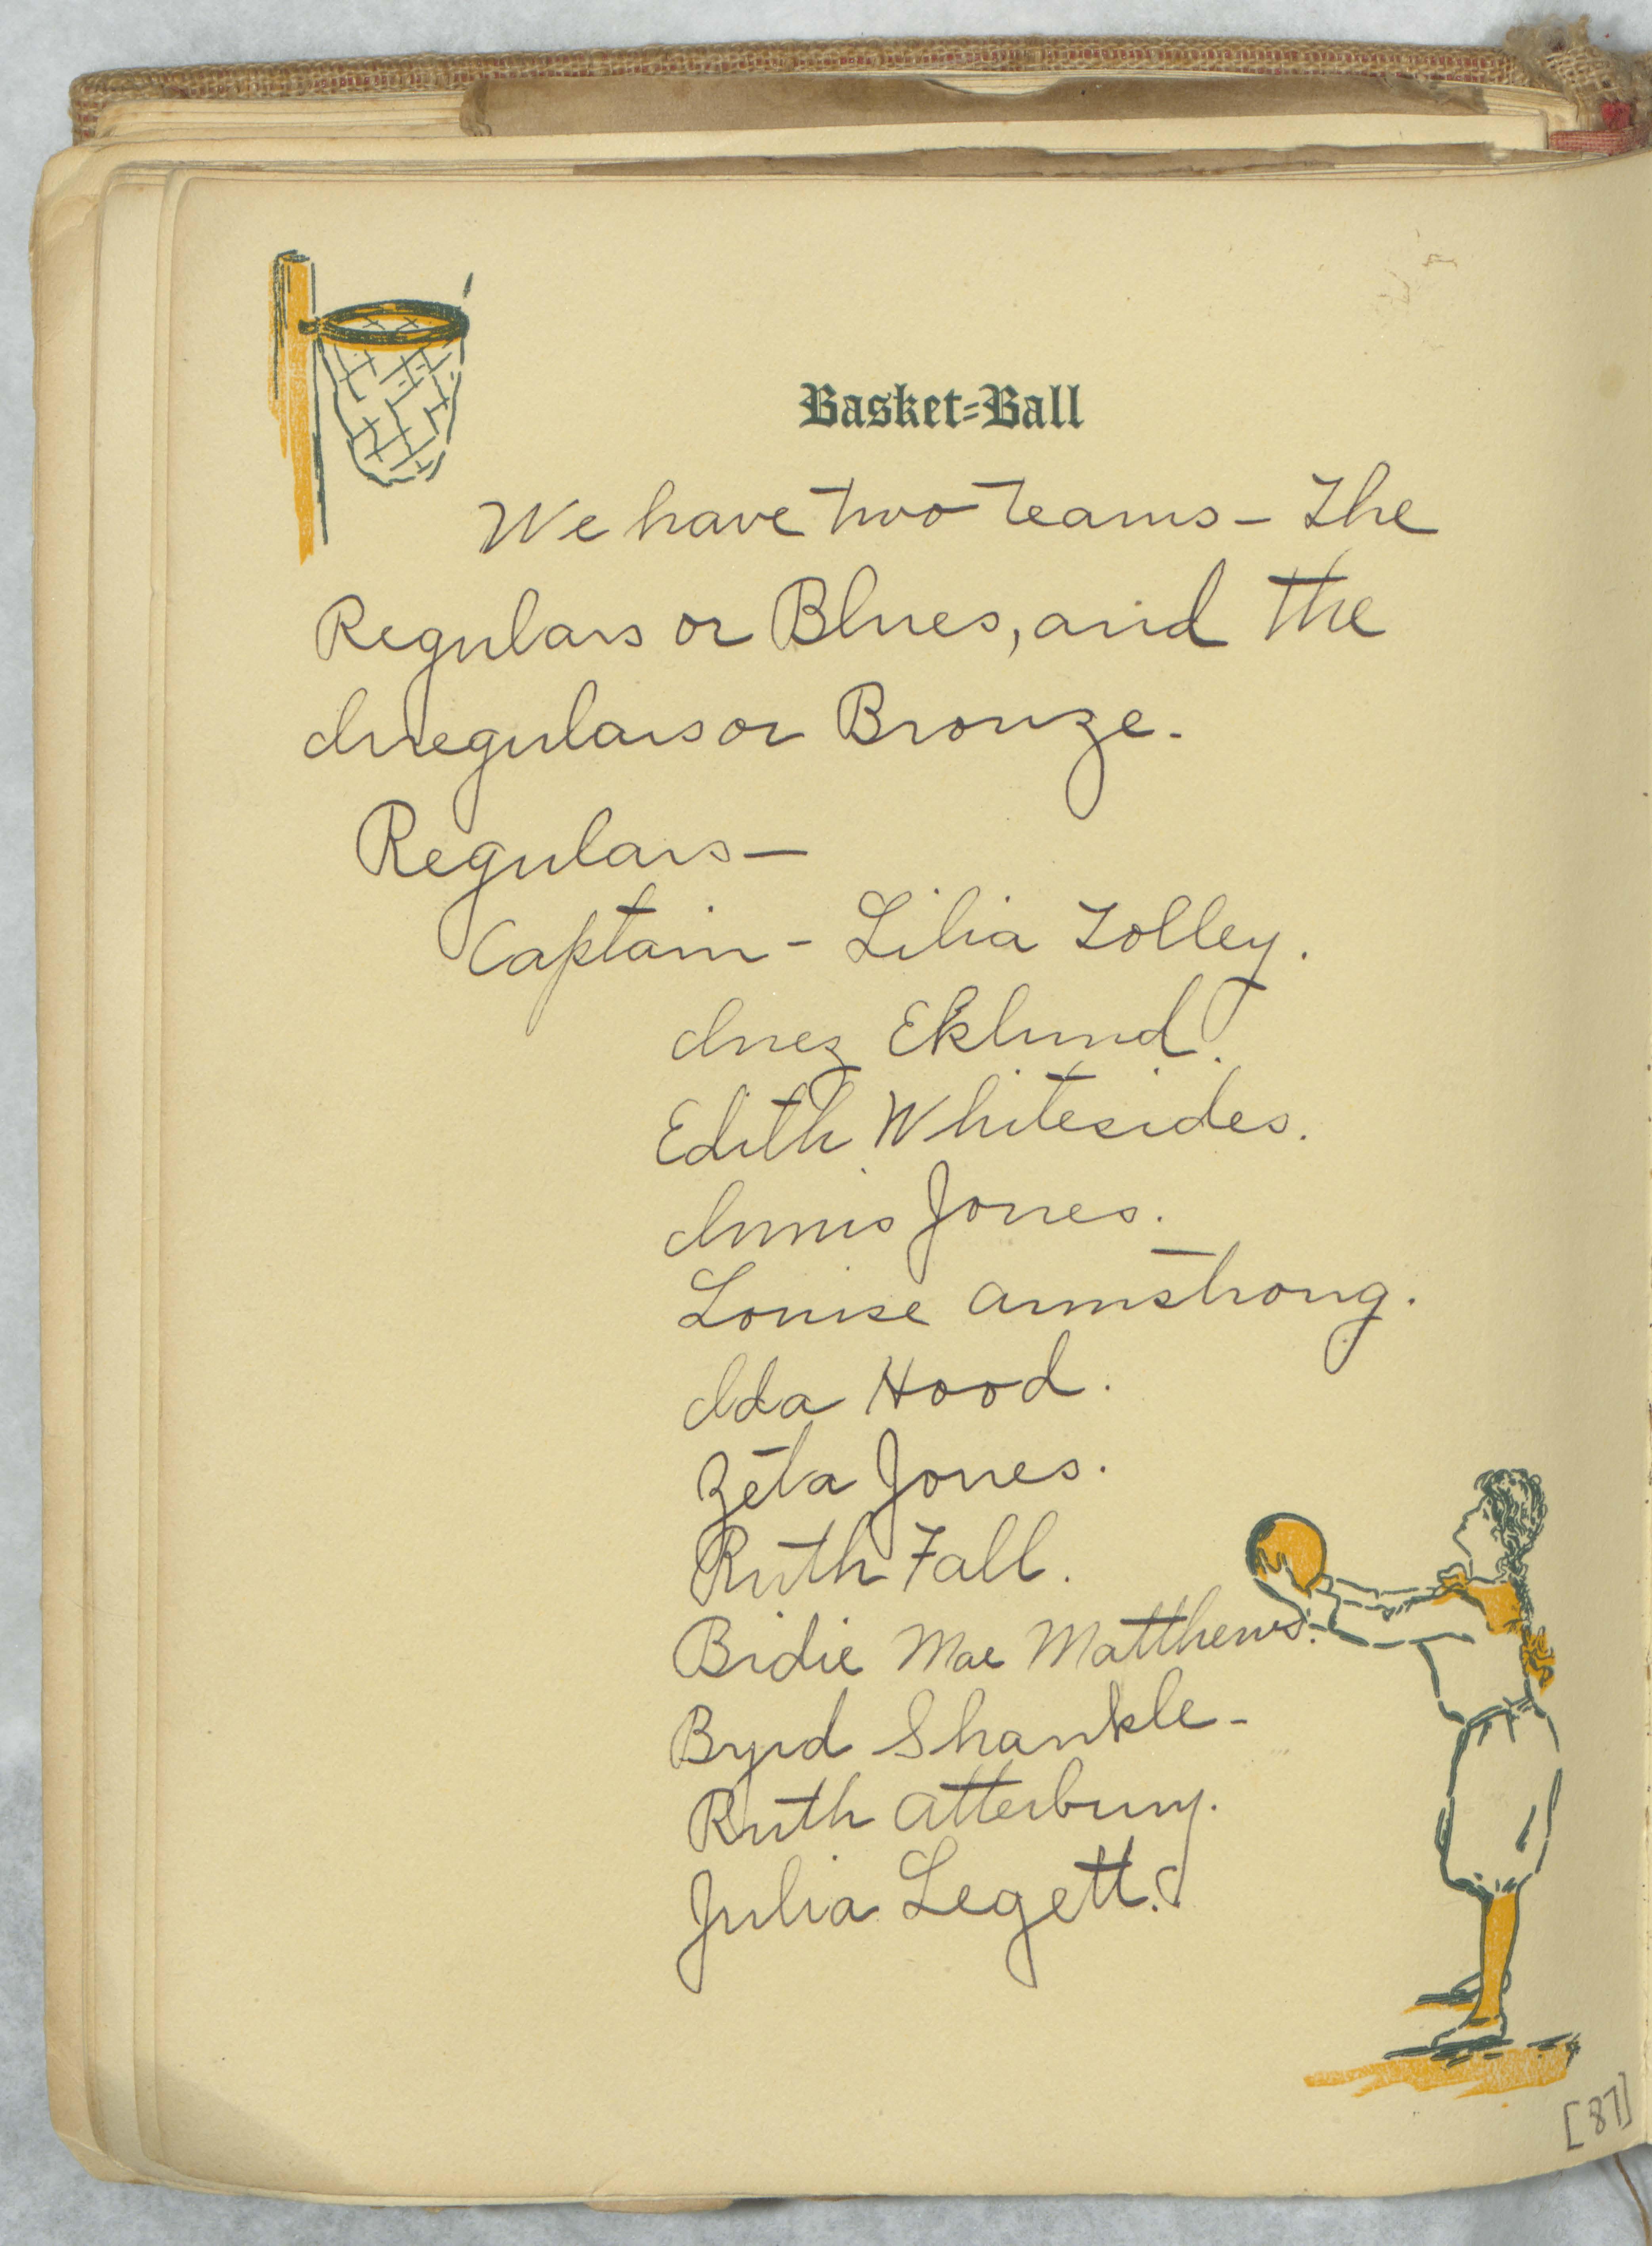 Basket-Ball
We have two teams - The
Regulars or Blues, and the
Irregulars or Bronze.
Regulars -
Captain - Lilia Tolley.
Inez Eklund.
Edith Whitesides.
Innis Jones.
Louise Armstrong.
Ida Hood.
Zeta Jones.
Ruth Fall.
Birdie Mae Matthews.
Byrd Shankle -
Ruth Atterbury.
Julia Legett.
[87]